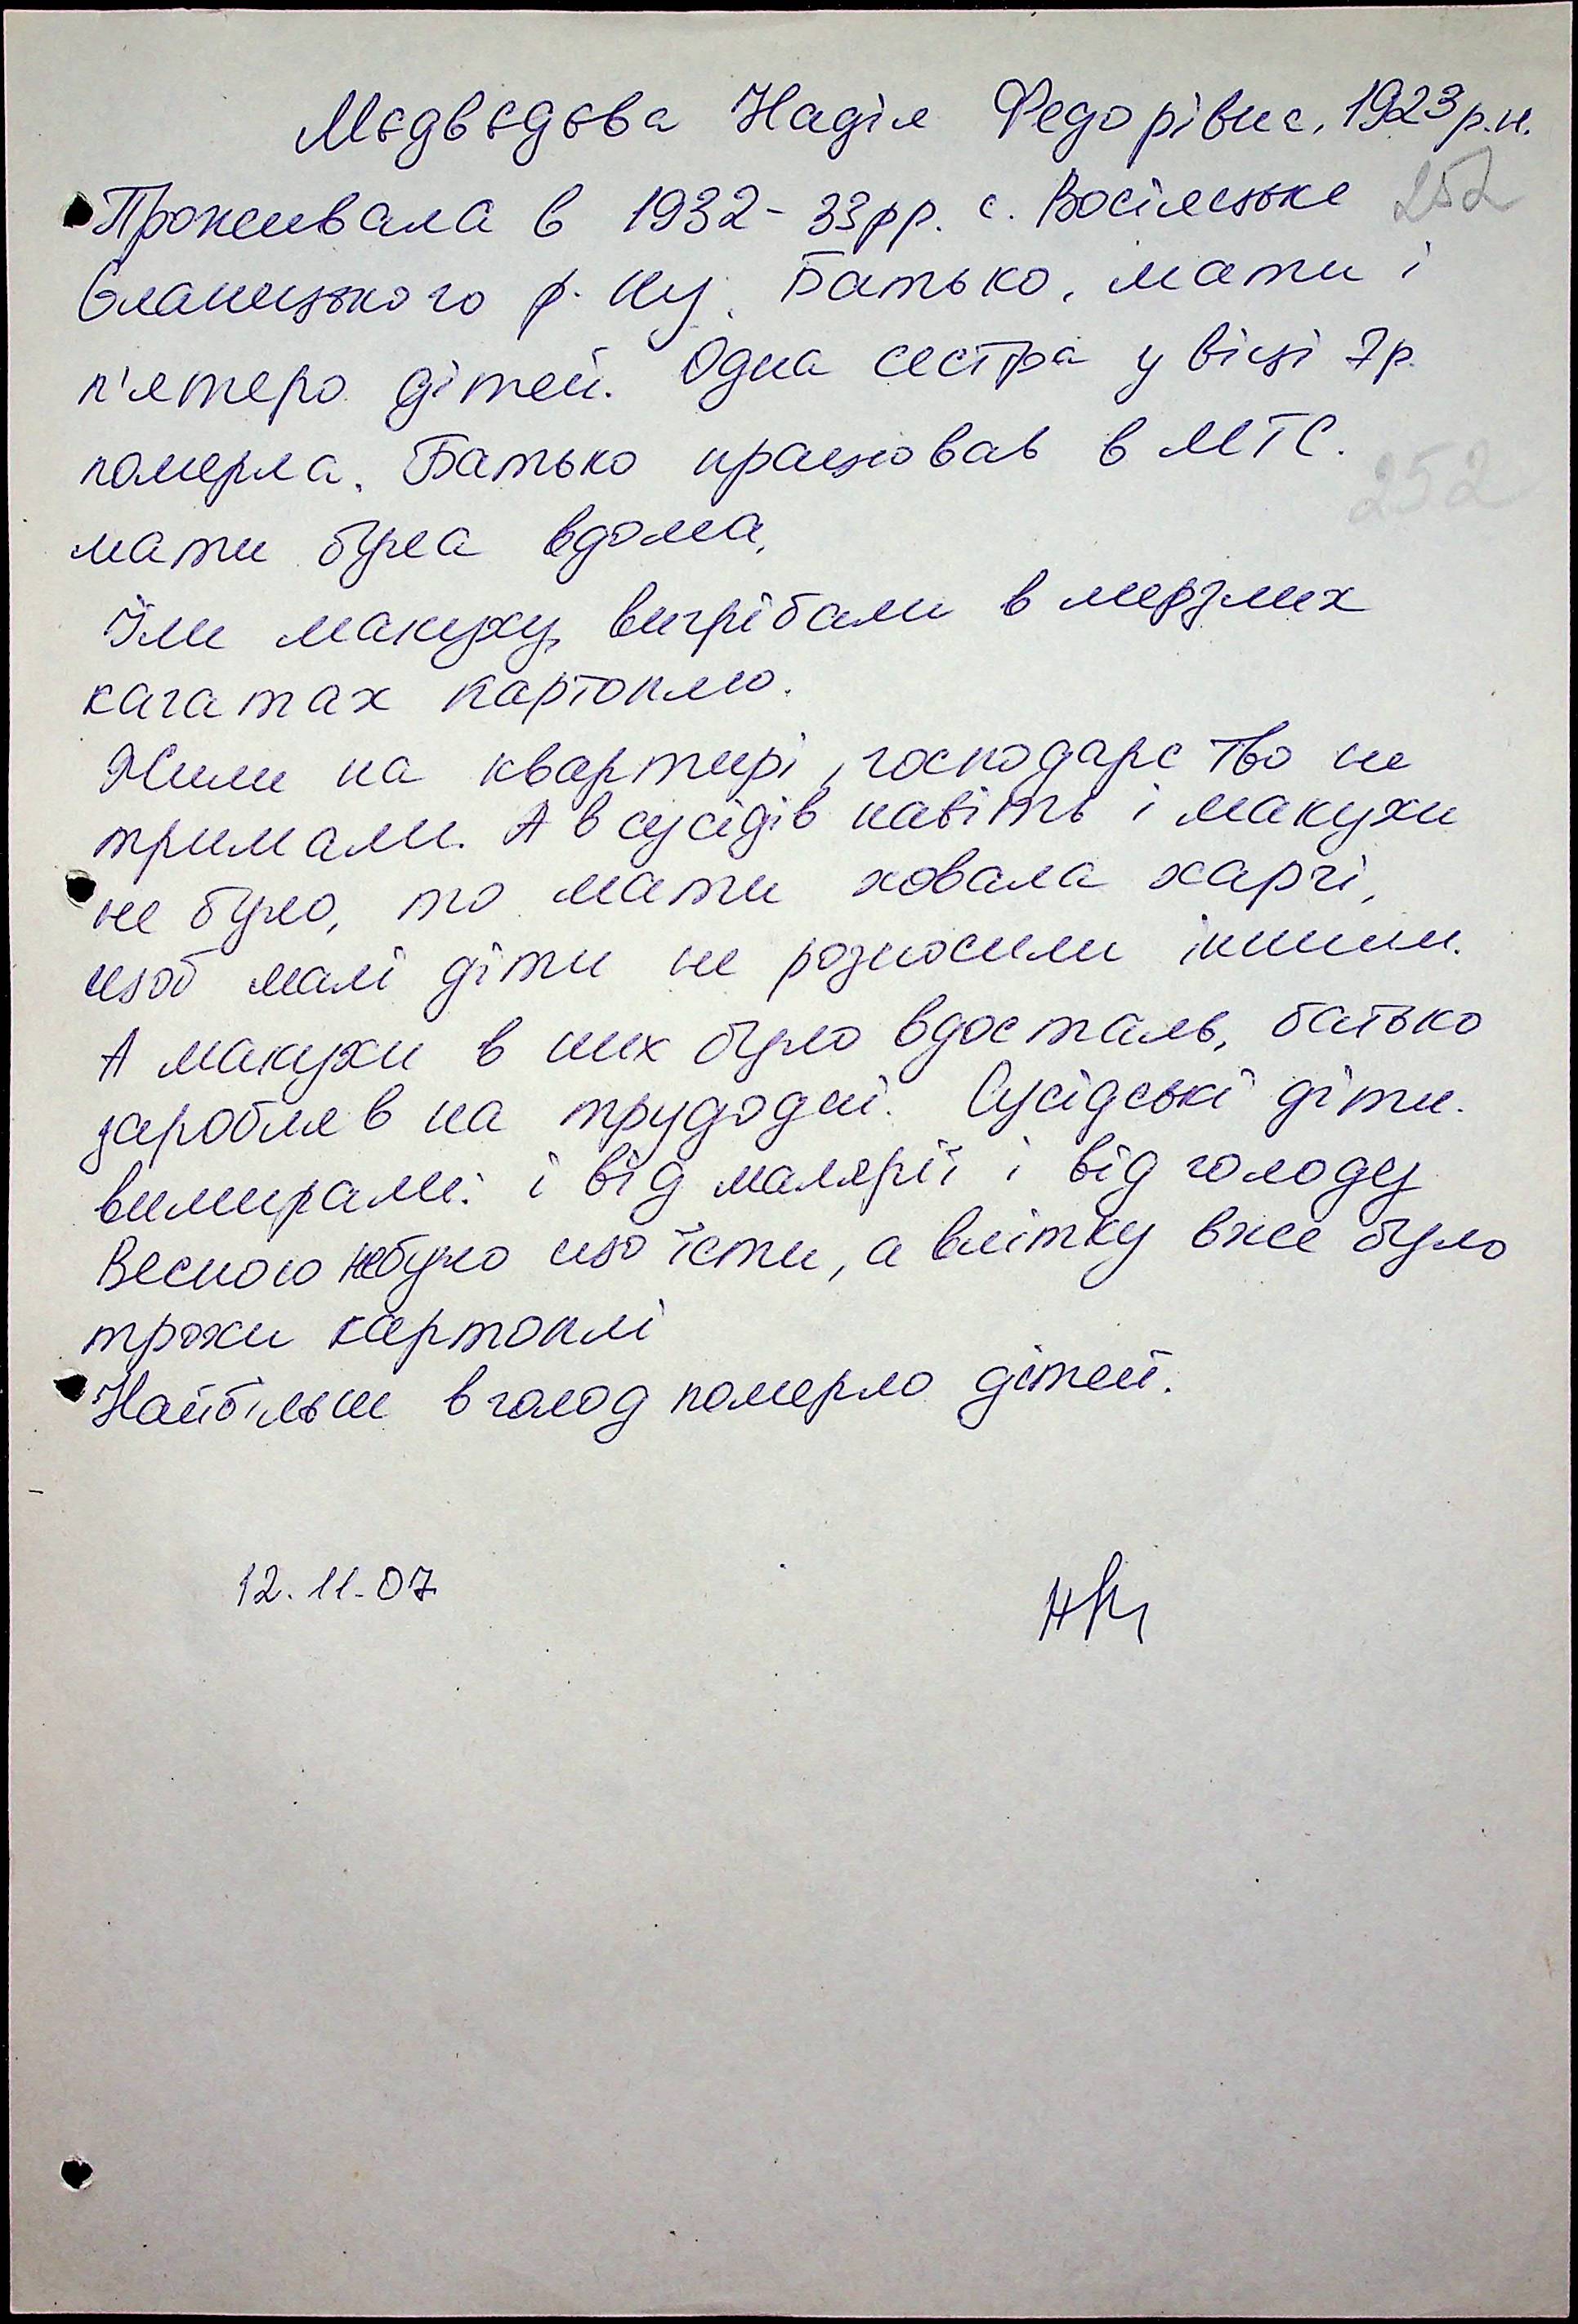 Мєдвєдєва Надія Федорівна, 1923 р.н.
Проживала в 1932-33рр. с. Возсіятське 252
Єланецького р-ну. Батько, мати і
п'ятеро дітей. Одна сестра у віці 7р.
померла. Батько працював в МТС.
252
мати була вдома,
Їли макуху, вигрібали в мерзлих
кагатах картоплю.
Жили на квартирі, господарство не
тримали. А в сусідів навіть і макухи
не було, то мати ховала харчі,
щоб малі діти не розносили іншим.
А макухи в них було вдосталь, батько
заробляв на трудодні. Сусідські діти
вимирали: і від малярії і від голоду
Весною не було що їсти, а влітку вже було
трохи картоплі
Найбільш в голод померло дітей.
12.11.07